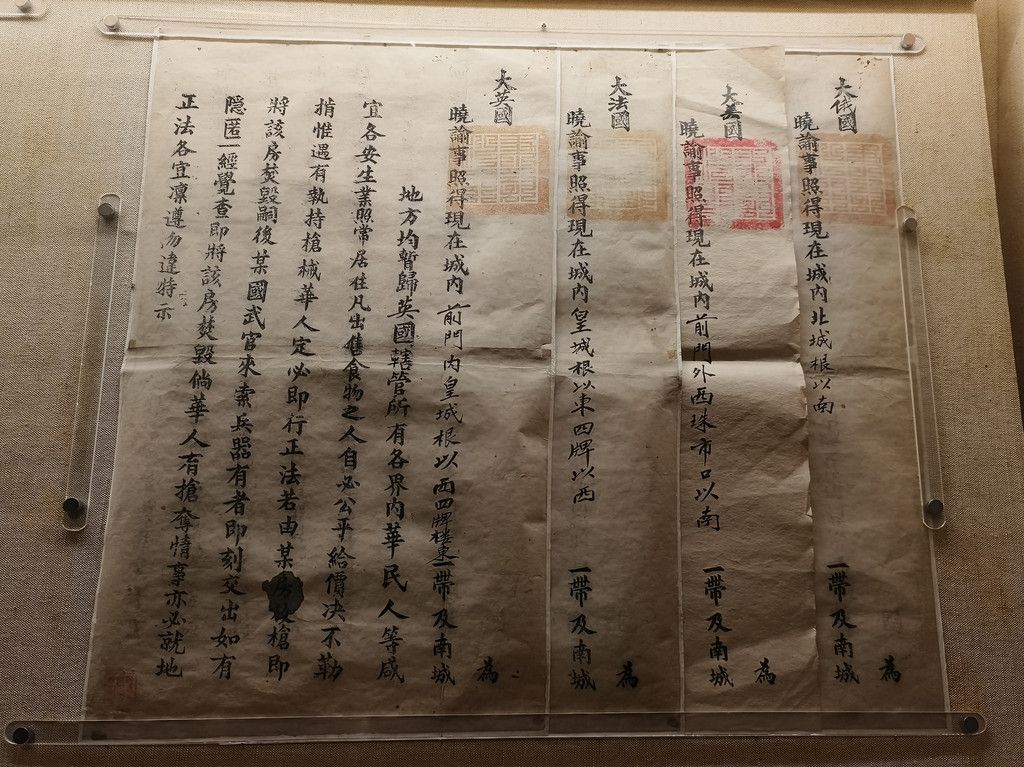 大俄國
為
曉諭事照得現在城內北城根以南一帶及南城
大美國
為
曉諭事照得現在城內前門外西珠市口以南一帶及南城
大法國
為
曉諭事照得現在城內皇城根以東四牌以西一帶及南城
大英國
為
曉諭事照得現在城內前門內皇城根以西四牌樓東一帶及南城
地方均暫歸英國轄管所有各界內華民人等咸
宜各安生業照常居住凡出售食物之人自必公平給價决不勒
掯惟遇有執持槍械華人定必即行正法若由某房放槍即
將該房焚毀嗣後某國武官來索兵器有者即刻交出如有
隱匿一經覺查即將該房焚毀倘華人有搶奪情事亦必就地
正法各宜凜遵勿違特示